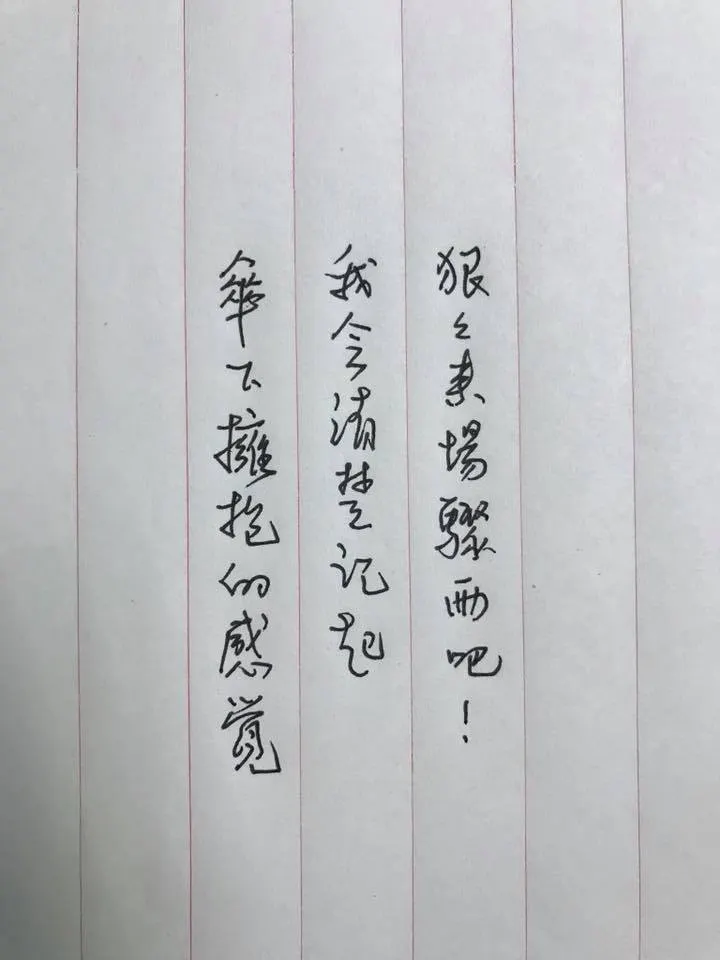 狠狠來場驟雨吧！
我会清楚记起
傘下擁抱的感覺